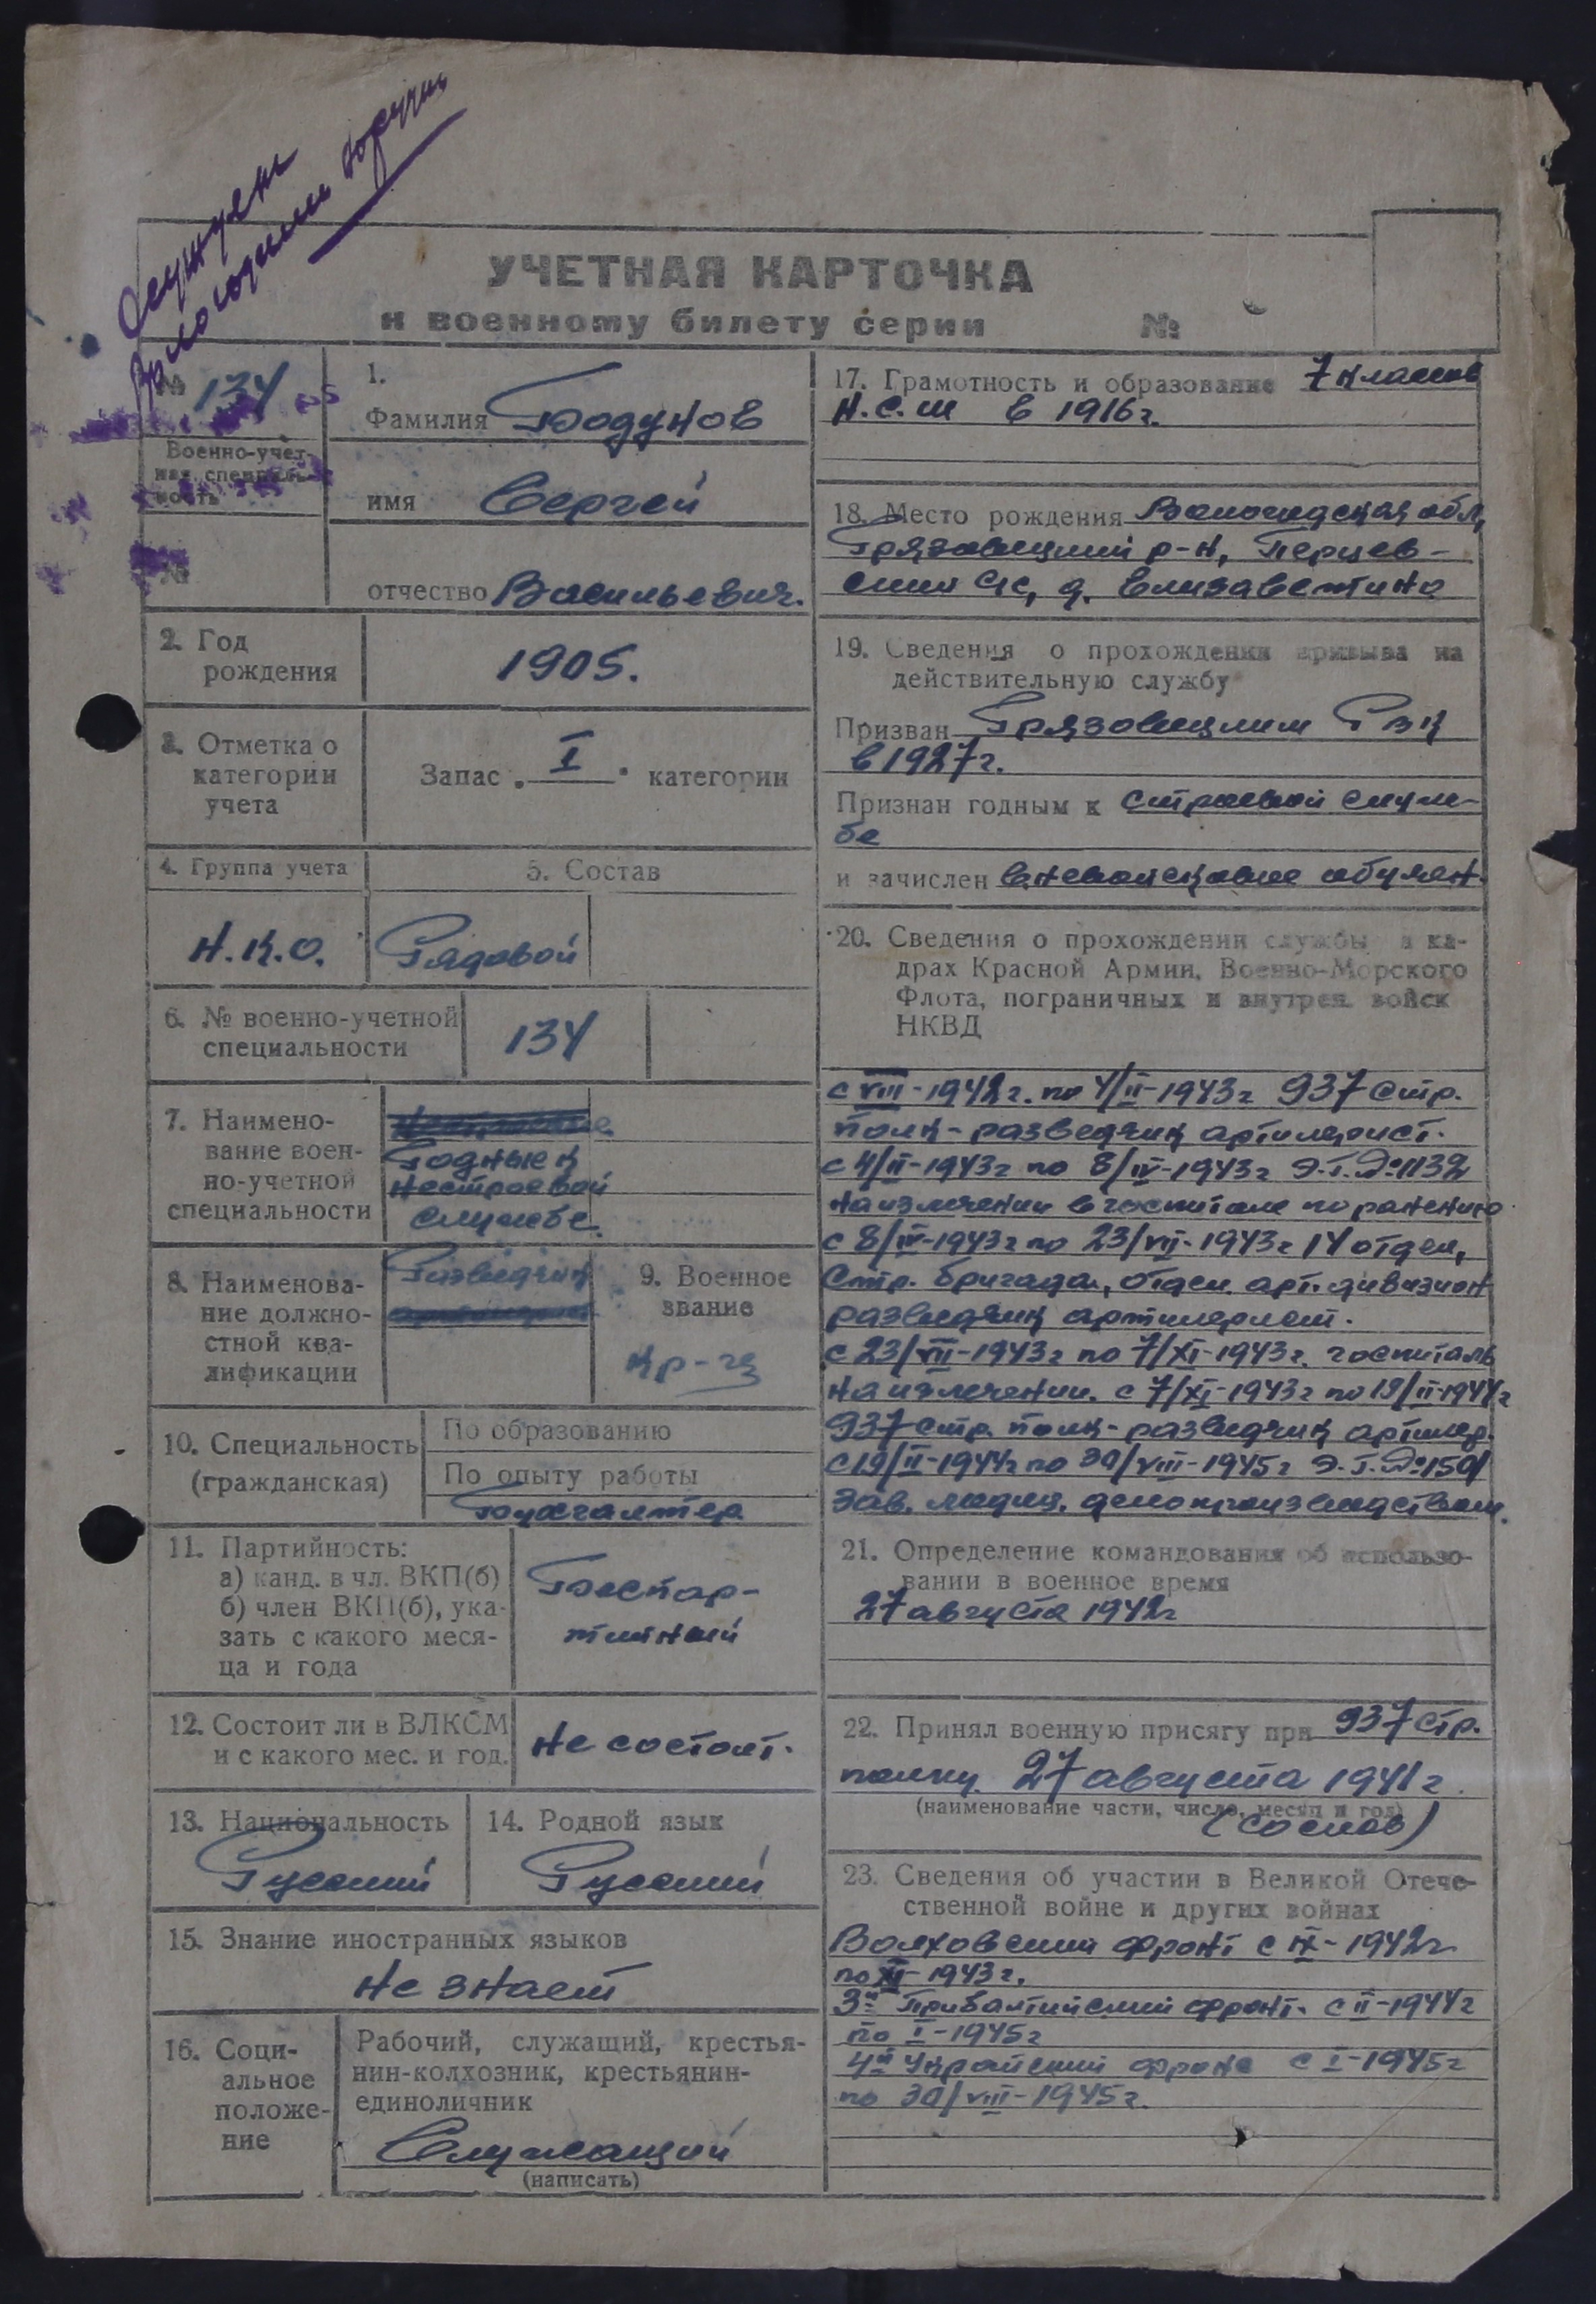 Осужден
Вологодским
УЧЕТНАЯ КАРТОЧКА
к военному билету серии №
№ 134
Военно-учет-
ная специаль-
ность
№
1.
Фамилия Бодунов
имя Сергей
отчество Васильевич.
2. Год
рождения
1905.
3. Отметка о
категории
учета
Запас „ I " категории
4. Группа учета
5. Состав
Н.К.О.
Рядовой
6. № военно-учетной
специальности
134
7. Наимено-
вание воен-
но-учетной
специальности
Годный к
нестроевой
службе.
8. Наименова-
ние должно-
стной ква-
лификации
Разведчик
9. Военное
звание
кр-ец
10. Специальность
(гражданская)
По образованию
По опыту работы
Бухгалтер
11. Партийность:
а) канд. в чл. ВКП(б)
б) член ВКП(б), ука-
зать с какого меся-
ца и года
Беспар-
тийный
12. Состоит ли в ВЛКСМ
и с какого мес. и год.
не состоит.
13. Национальность
Русский
14. Родной язык
Русский
15. Знание иностранных языков
не знает
16. Соци-
альное
положе-
ние
Рабочий, служащий, крестья-
нин-колхозник, крестьянин-
единоличник
Служащий
(написать)
17. Грамотность и образование 7 классов
Н.С.Ш в 1916г.
18. Место рождения Вологодская обл,
Грязовецкий р-н, Перцев-
ский с/с, д. Елизаветино
19. Сведения о прохождении призыва на
действительную службу
Призван Грязовецким РВК
в 1927г.
Признан годным к строевой служ-
бе
и зачислен вневойсковое обучен.
20. Сведения о прохождении службы в ка-
драх Красной Армии, Военно-Морского
Флота, пограничных и внутрен. войск
НКВД
с VIII-1942г. по 4/II-1943г 937 стр.
полк-разведчик артилерист.
с 4/II-1943г по 8/IV-1943г Э.Г.№1132
на излечении в госпитале по ранению
с 8/IV-1943г по 23/VII-1943г 14 отдел,
стр. бригада, отдел. арт. дивизион
разведчик артилерист.
с 23/VII-1943г по 7/XI-1943г. госпиталь
на излечении. с 7/XI-1943г по 19/II-1944г
937 стр. полк-разведчик артилер.
с 19/II-1944г по 30/VIII-1945г Э.Г.№1501
Зав. медиц. делопроизводством.
21. Определение командования об использо-
вании в военное время
27 августа 1942г
22. Принял военную присягу при 937 стр.
полку 27 августа 1941г.
(наименование части, число, месяц и год)
(со слов)
23. Сведения об участии в Великой Отече-
ственной войне и других войнах
Волховский фронт с IX-1942г
по XI-1943г.
3й Прибалтийский фронт. с II-1944г
по I-1945г
4й Украйнский фронт с I-1945г
по 30/VIII-1945г.